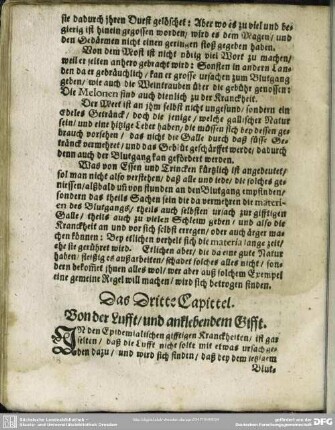 sie dadurch jhren Durst geldschet: Aber wo es zu viel und be-
gierig ist hinein gegossen worden/ wird es dem Magen/ und
den Gedärmen nicht einen geringen stoß gegeben haben.
Von dem Most ist nicht vbrig viel Wort zu machen/
weil er selten anhero gebracht wird: Sonsten in andern Lan-
den da er gebräuchlich/ kan er grosse ursachen zum Blutgang
geben/ wie auch die Weintrauben über die gebühr genossen:
Die Melonen sind auch dienlich zu der Kranckheit.
Der Meet ist an jhm selbst nicht ungesund/ sondern ein
Edeles Getränck/ doch die jenige/ welche gallischer Natur
sein/ und eine hitzige Leber haben/ die müssen sich bey dessen ge-
brauch vorsehen/ das nicht die Galle durch daß süsse Ge-
tränck vermehret/ und das Geblüt geschärffet werde/ dadurch
denn auch der Blutgang kan gefördert werden.
Was von Essen und Trincken kürtzlich ist angedeutet/
sol man nicht also verstehen/ daß alle und jede/ die solches ge-
niessen/ alßbald uñ von stunden an den Blutgang empfinden/
sondern das theils Sachen sein die da vermehren die materi-
en des Blutgangs/ theils auch selbsten ursach zur gifftigen
Galle/ theils auch zu vielen Schleim geben/ und also die
Kranckheit an und vor sich selbst erregen/ oder auch ärger ma-
chen können: Bey etlichen verhelt sich die materia lange zeit/
ehe sie gerühret wird. Etlichen aber/ die da eine gute Natur
haben/ fleißig es außarbeiten/ schadet solches alles nicht/ son-
dern bekomet jhnen alles wol/ wer aber auß solchem Exempel
eine gemeine Regel will machen/ wird sich betrogen finden.
Das Dritte Capittel.
Von der Lufft/ und anklebendem Gifft.
IN den Epidemialischen gifftigen Kranckheiten/ ist gar
selten/ daß die Lufft nicht solte mit etwas ursach ge-
ben dazu/ und wird sich finden/ daß bey dem
Blut-